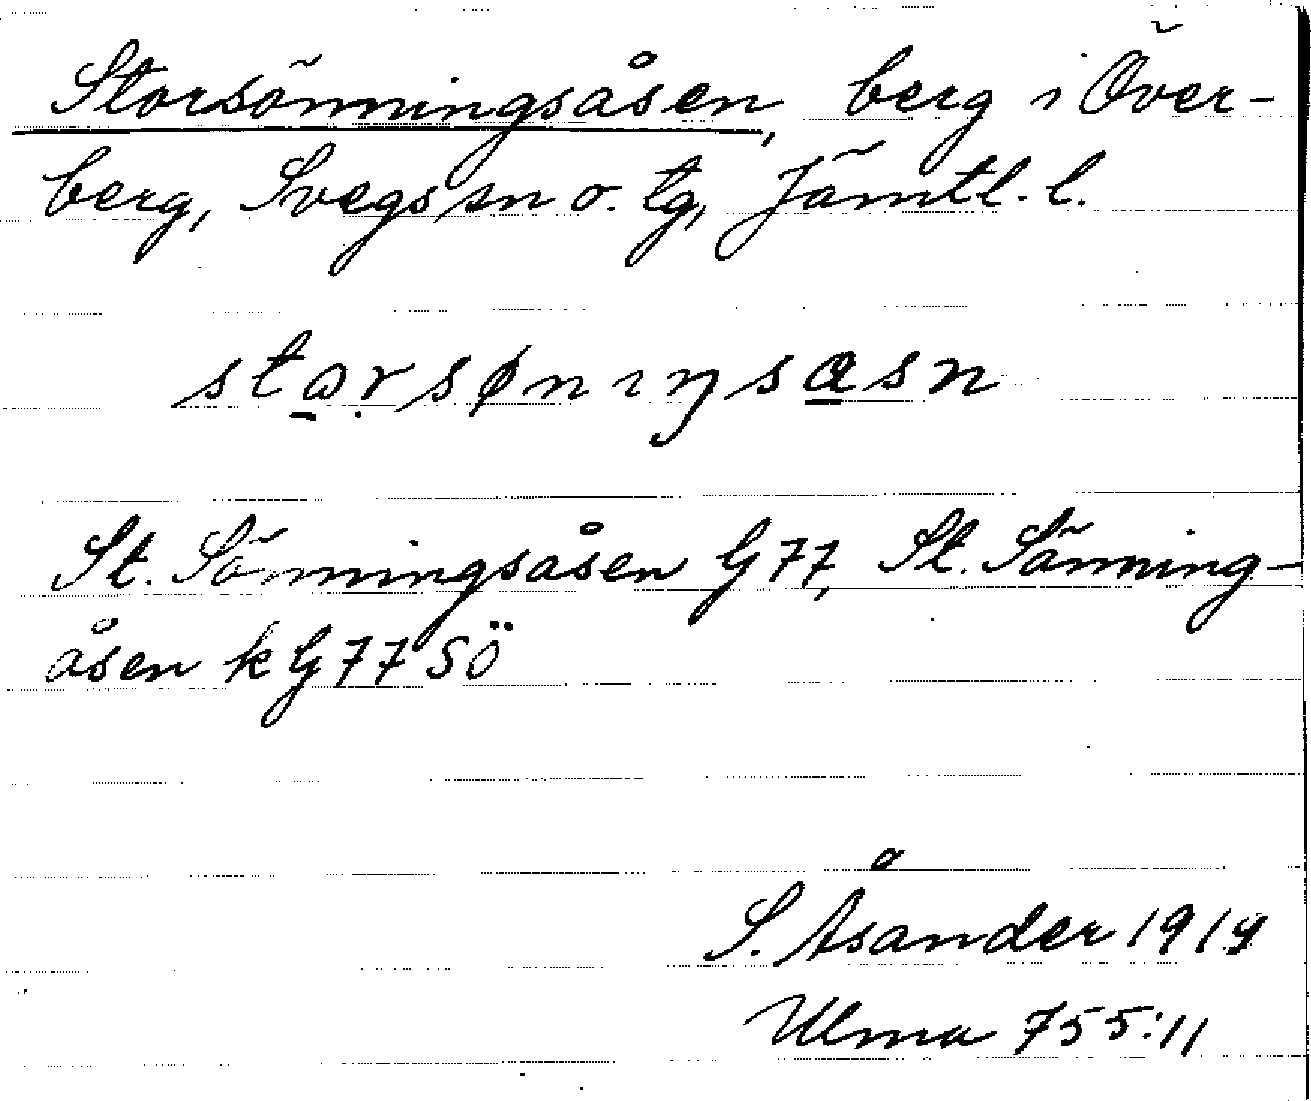 Storsönningsåsen, berg i Över-
berg, Svegs sn o. tg, Jämtl. l.
starsøniŋsasn
St. Sönningsåsen G 77, St. Sänning-
åsen k G 77 SÖ
S. Åsander 1919
Ulma 755:11